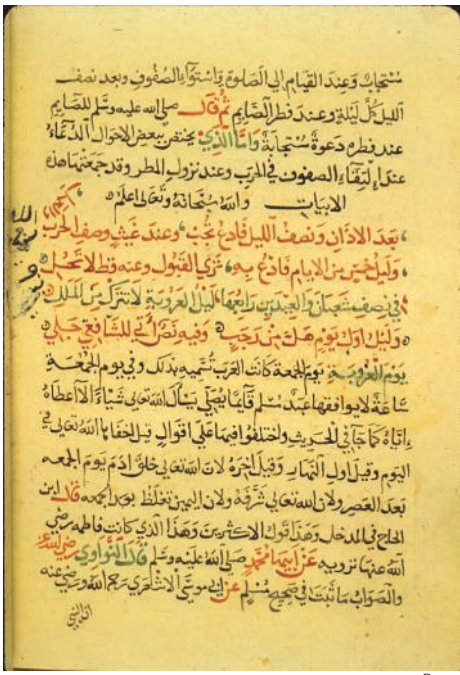 ستجاب وعند القيام الي الصلوة واستواء الصفوف وبعد نصف
الليل كل ليلة وعند فطر الصايم ثم قال صلي الله عليه وسلم للصايم
عند فطره دعوة مستجابة واما الذي يختص ببعض الاحوال الدعاء
عند التقاء الصفوف في الحرب وعند نزول المطر وقد جمعتها هذه
الابيات والله سبحانه وتعالى اعلم
بعد الاذان ونصف الليل فادع تجب وعند غيث وصف الحرب
وليل خمس من الايام فادع به تري القبول وعنه قط لا تحل
في نصف شعبان والعيدين رابعها ليل العروبة لا تترك من الملك
وليل اول يوم هل من رجب وفيه نص اتي للشافعي جلي
يوم العروبة يوم الجمعة كانت العرب تسميه بذلك وفي يوم الجمعة
ساعة لا يوافقها عبد مسلم قايما يصلي يسال الله تعالى شياء الا اعطاه
اياه كما جا في الحديث واختلفوا فيها علي اقوال قيل اخفاها الله تعالى في
اليوم وقيل اول النهار وقيل اخره لان الله تعالى خلق ادم يوم الجمعه
بعد العصر ولان الله تعالى شرفه ولان اليمين تغلظ يوم الجمعه قال ابن
الحاج في المدخل وهذا قول الاكثرين وهذا الذي كانت فاطمه رضي
الله عنها ترويه عن ابيها محمد صلي الله عليه وسلم قال النواوي رضي الله عنه
والصواب ما ثبت في صحيح مسلم عن ابي موسي الاشعري رحمه الله ورضي عنه
ان النبي